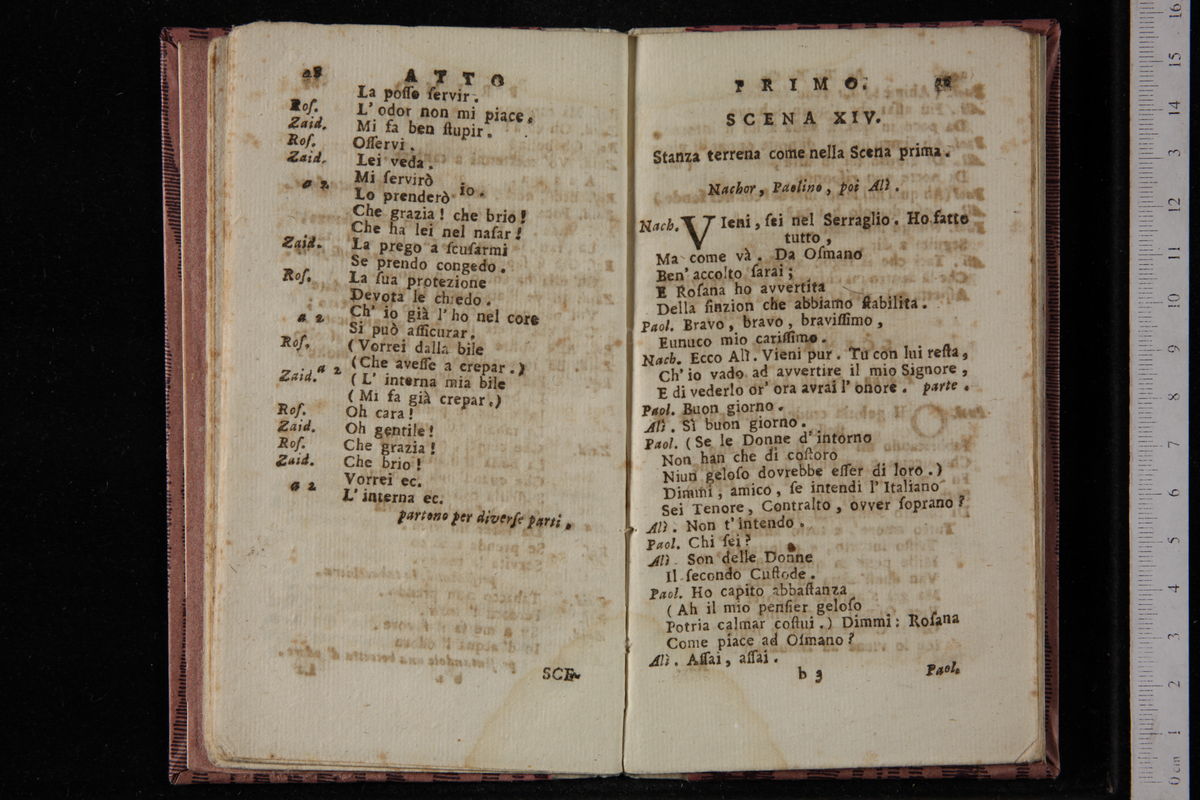 28 ATTO
La posso servir.
Ros. L' odor non mi piace.
Zaid. Mi fa ben stupir.
Ros. Osservi.
Zaid. Lei veda.
a 2 Mi servirò
Lo prenderò io.
Che grazia! che brio!
Che ha lei nel nasar!
Zaid. La prego a scusarmi
Se prendo congedo.
Ros. La sua protezione
Devota le chiedo.
a 2 Ch' io già l' ho nel core
Si può assicurar.
Ros. (Vorrei dalla bile
a 2 (Che avesse a crepar.)
Zaid. (L' interna mia bile
(Mi fa già crepar.)
Ros. Oh cara!
Zaid. Oh gentile!
Ros. Che grazia!
Zaid. Che brio!
a 2 Vorrei ec.
L' interna ec.
partono per diverse parti.
SCE-
PRIMO.
SCENA XIV.
Stanza terrena come nella Scena prima.
Nachor, Paolino, poi Alì.
Nach. VIeni, sei nel Serraglio. Ho fatto
tutto,
Ma come và. Da Osmano
Ben' accolto sarai;
E Rosana ho avvertita
Della finzion che abbiamo stabilita.
Paol. Bravo, bravo, bravissimo,
Eunuco mio carissimo.
Nach. Ecco Alì. Vieni pur. Tu con lui resta,
Ch' io vado ad avvertire il mio Signore,
E di vederlo or' ora avrai l' onore. parte.
Paol. Buon giorno.
Alì. Sì buon giorno.
Paol. (Se le Donne d' intorno
Non han che di costoro
Niun geloso dovrebbe esser di loro.)
Dimmi, amico, se intendi l' Italiano
Sei Tenore, Contralto, ovver soprano?
Alì. Non t' intendo.
Paol. Chi sei?
Alì. Son delle Donne
Il secondo Custode.
Paol. Ho capito abbastanza
(Ah il mio pensier geloso
Potria calmar costui.) Dimmi: Rosana
Come piace ad Osmano?
Alì. Assai, assai.
b 3 Paol.
0 cm 1 2 3 4 5 6 7 8 9 10 11 12 13 14 15 16